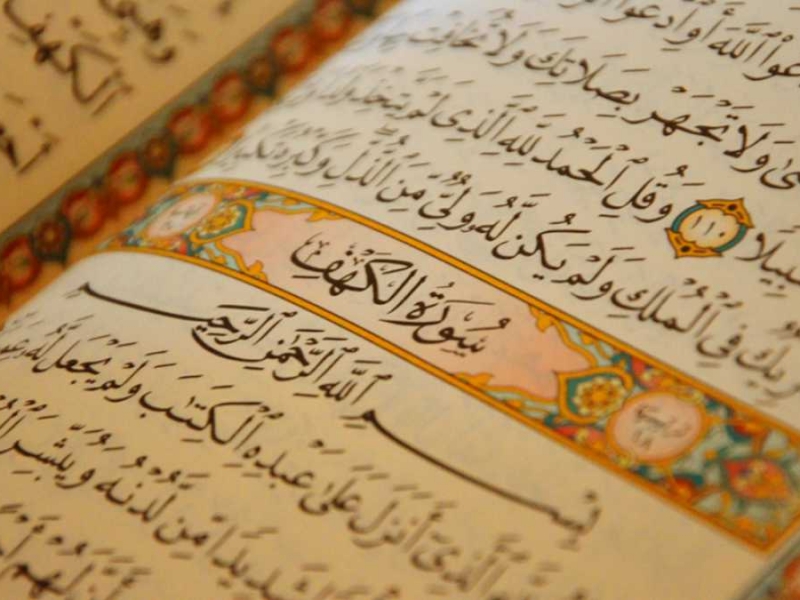 عُوا۟ ٱللَّهَ أَوِ ٱدْعُوا۟
وَلَا تَجْهَرْ بِصَلَاتِكَ وَلَا تُخَافِتْ
سَبِيلًا ١١٠ وَقُلِ ٱلْحَمْدُ لِلَّهِ ٱلَّذِى لَمْ يَتَّخِذْ وَلَدًا
رِيكٌ فِى ٱلْمُلْكِ وَلَمْ يَكُن لَّهُۥ وَلِىٌّ مِّنَ ٱلذُّلِّ وَكَبِّرْهُ تَكْبِيرًا
سُورَةُ الكَهْفِ
بِسْمِ ٱللَّهِ ٱلرَّحْمَٰنِ ٱلرَّحِيمِ
ٱلَّذِىٓ أَنزَلَ عَلَىٰ عَبْدِهِ ٱلْكِتَٰبَ وَلَمْ يَجْعَل لَّهُۥ
شَدِيدًا مِّن لَّدُنْهُ وَيُبَشِّرَ
أَنَّ لَهُمْ
ٱلْكَهْفِ